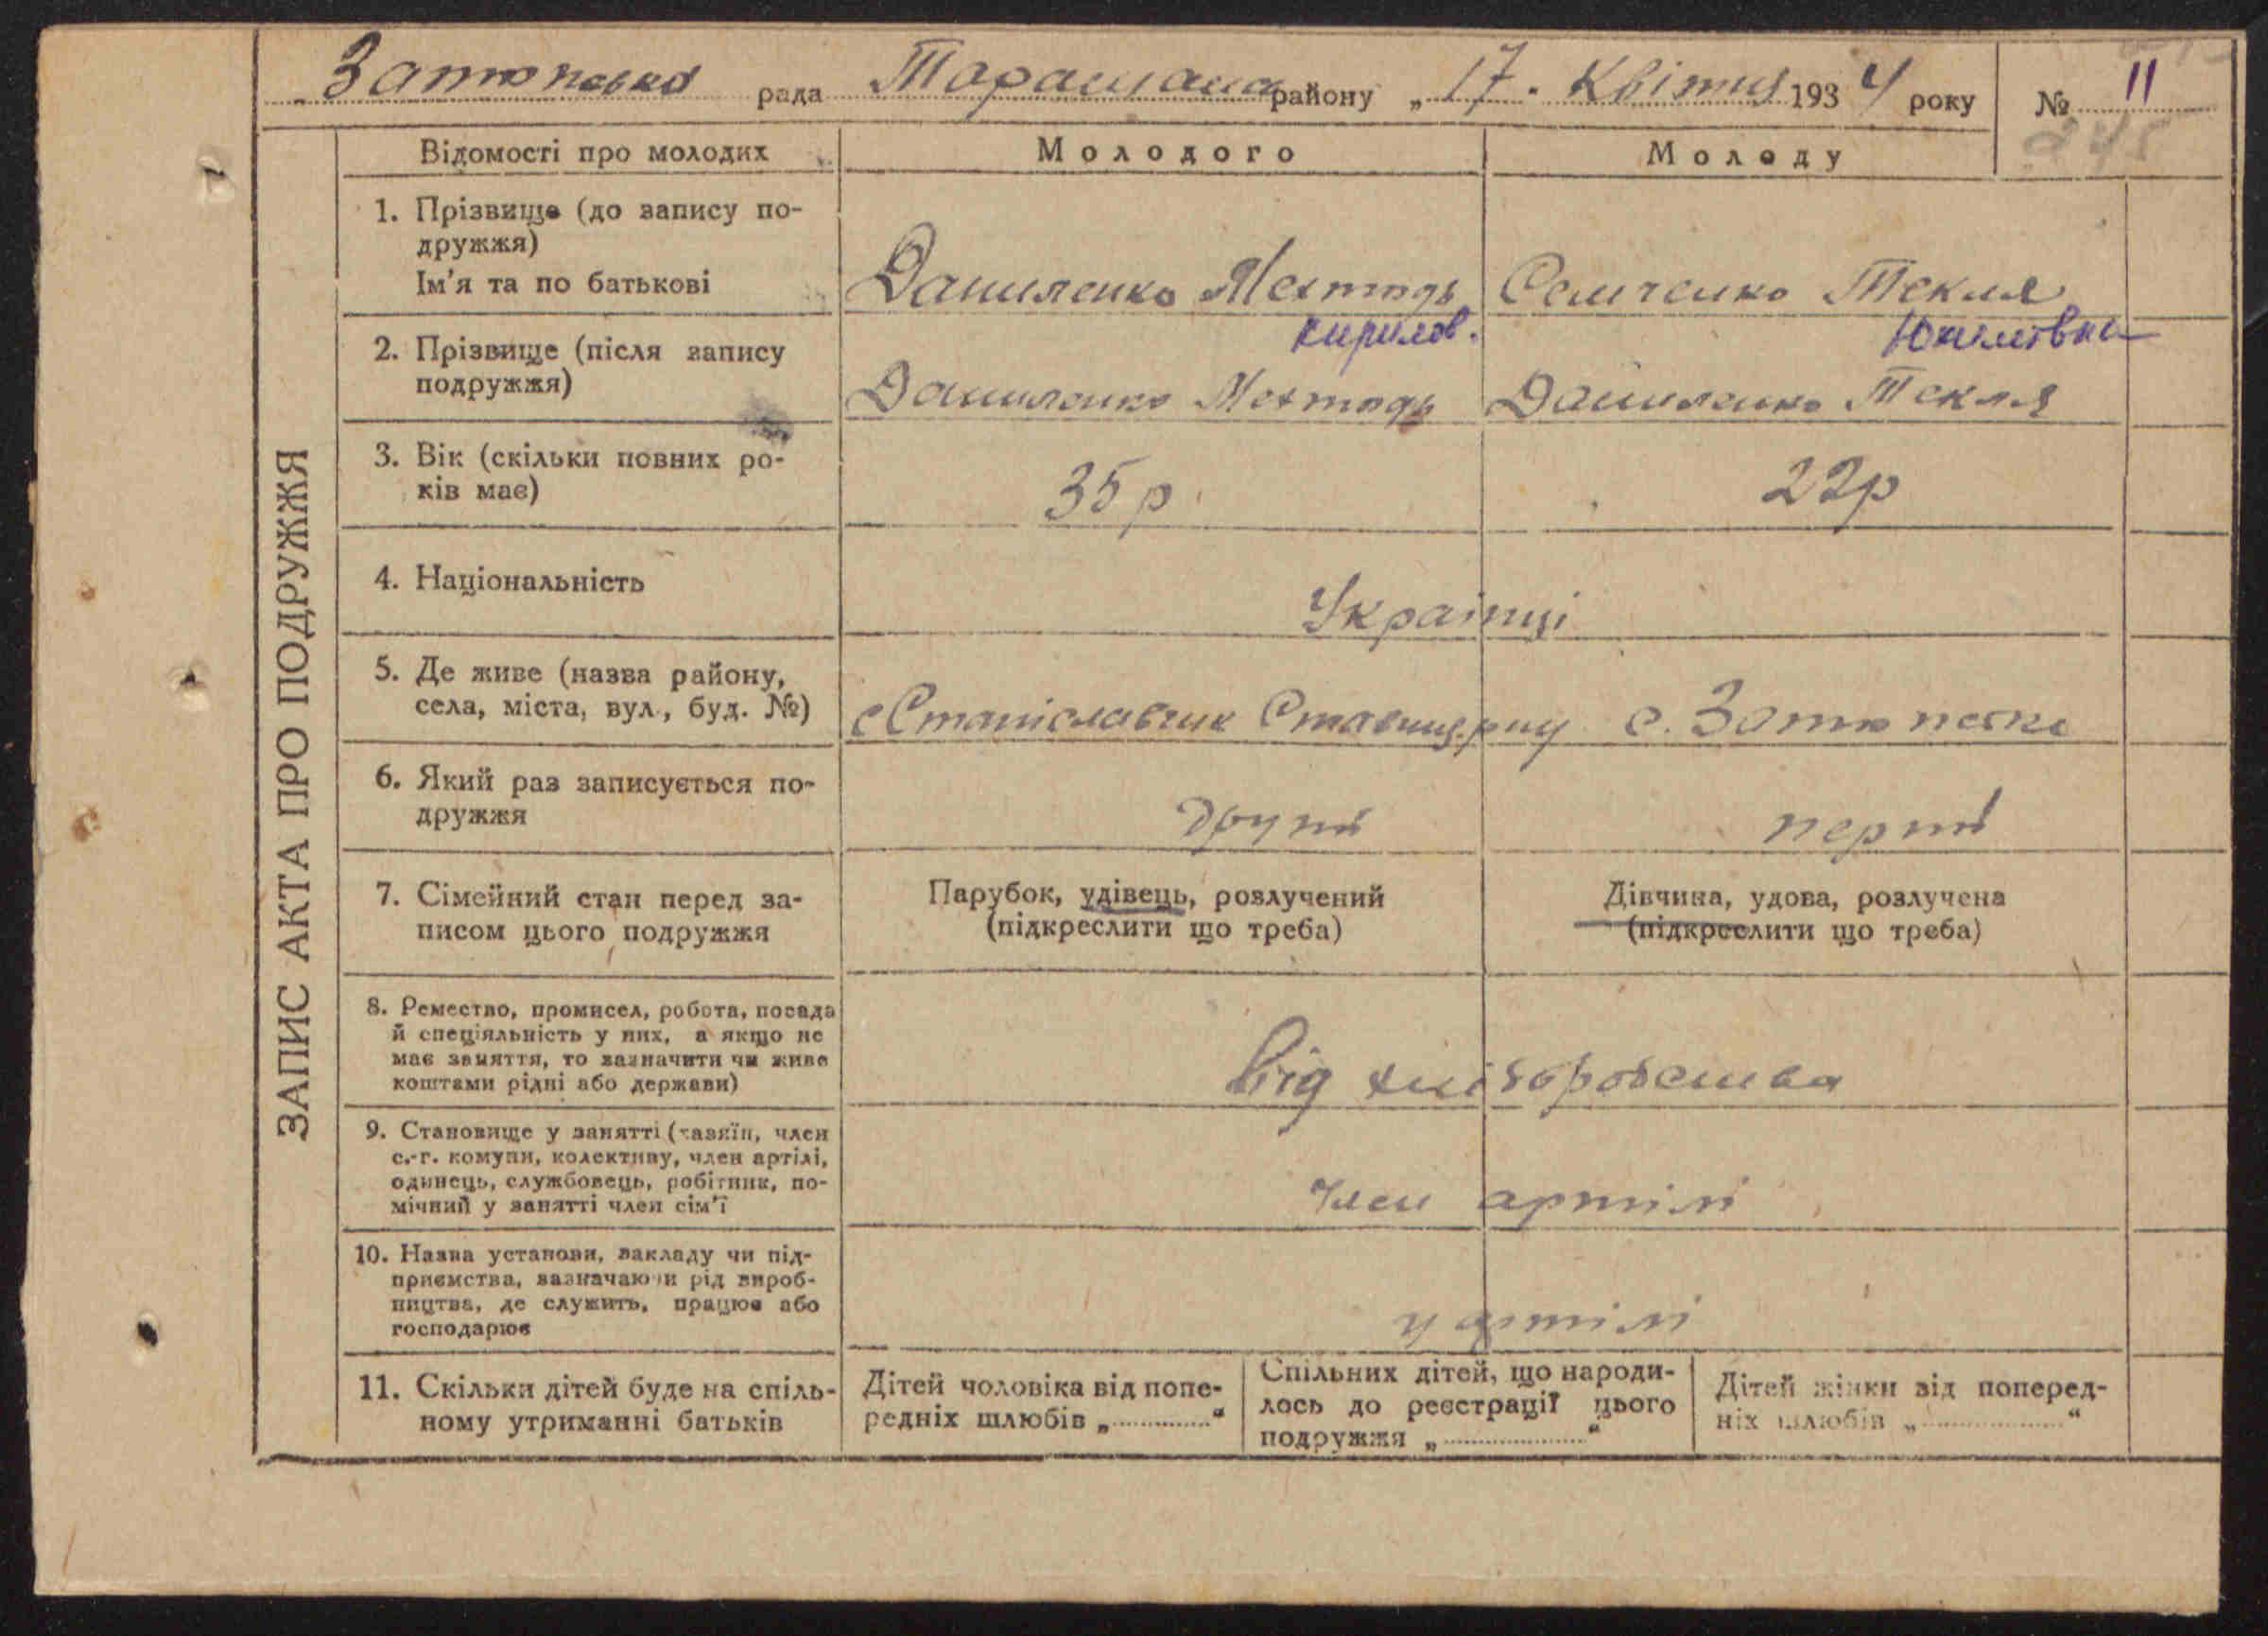 Затюпська рада Таращанс району „17. Квітня 1934 року № 11
245
ЗАПИС АКТА ПРО ПОДРУЖЖЯ
Відомості про молодих Молодого Молоду
1. Прізвище (до запису по-
дружжя)
Ім'я та по батькові Даниленко Мехтодь Семченко Текля
Кирилов. Юхимовна
2. Прізвище (після запису
подружжя) Даниленко Мехтодь Даниленко Текля
3. Вік (скільки повних ро-
ків має) 35 р 22р
4. Національність Українці
5. Де живе (назва району,
села, міста, вул., буд. №) с Станіславчик Ставищ. рну с. Затюпська
6. Який раз записується по-
дружжя другий перший
7. Сімейний стан перед за-
писом цього подружжя
Парубок, удівець, розлучений
(підкреслити що треба)
Дівчина, удова, розлучена
(підкреслити що треба)
8. Ремество, промисел, робота, посада
й спеціяльність у них, а якщо не
має заняття, то зазначити чи живе
коштами рідні або держави) від хліборобства
9. Становище у занятті (хазяїн, член
с.-г. комуни, колективу, член артілі,
одинець, службовець, робітник, по-
мічний у занятті член сім'ї член артілі
10. Назва установи, закладу чи під-
приємства, зазначаючи рід вироб-
ництва, де служить, працює або
господарює у артілі
11. Скільки дітей буде на спіль-
ному утриманні батьків
Дітей чоловіка від попе-
редніх шлюбів „ “
Спільних дітей, що народи-
лось до реєстрації цього
подружжя „ “
Дітей жінки від поперед-
ніх шлюбів „ “